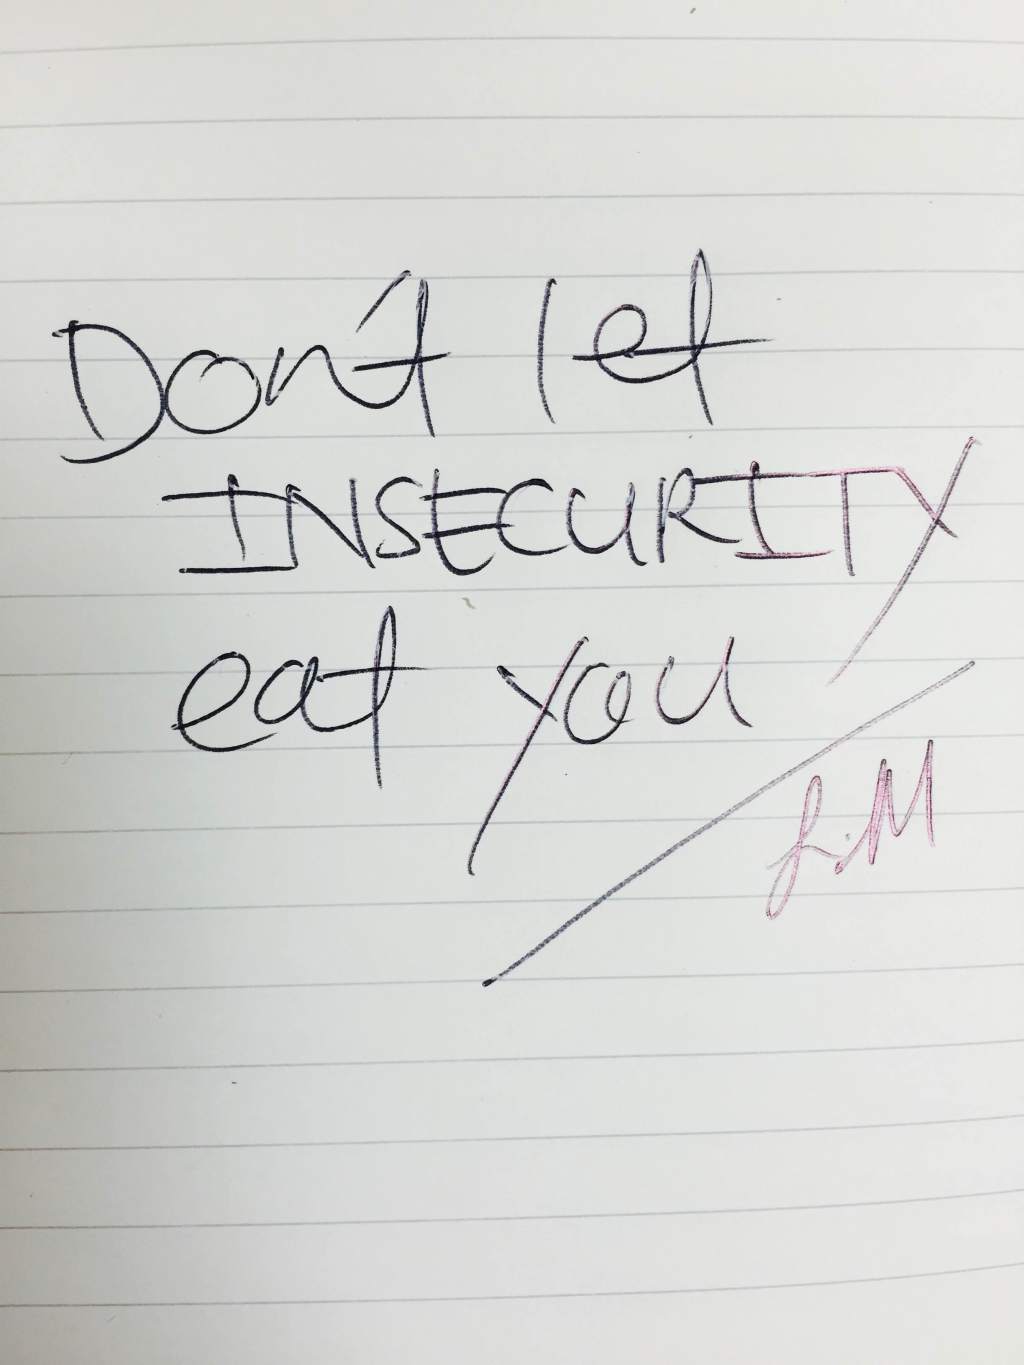 Don't let
INSECURITY
eat you